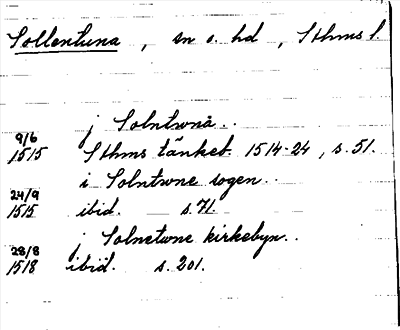 Sollentuna, sn o. hd, Sthms l.
j Solntwnå..
9/6
1515 Sthms tänkeb. 1514-24, s. 51.
i Solntwne sogen..
24/9
1515 ibid. s. 71.
j Solnetwne kirkebyn..
28/8
1518 ibid. s. 201.